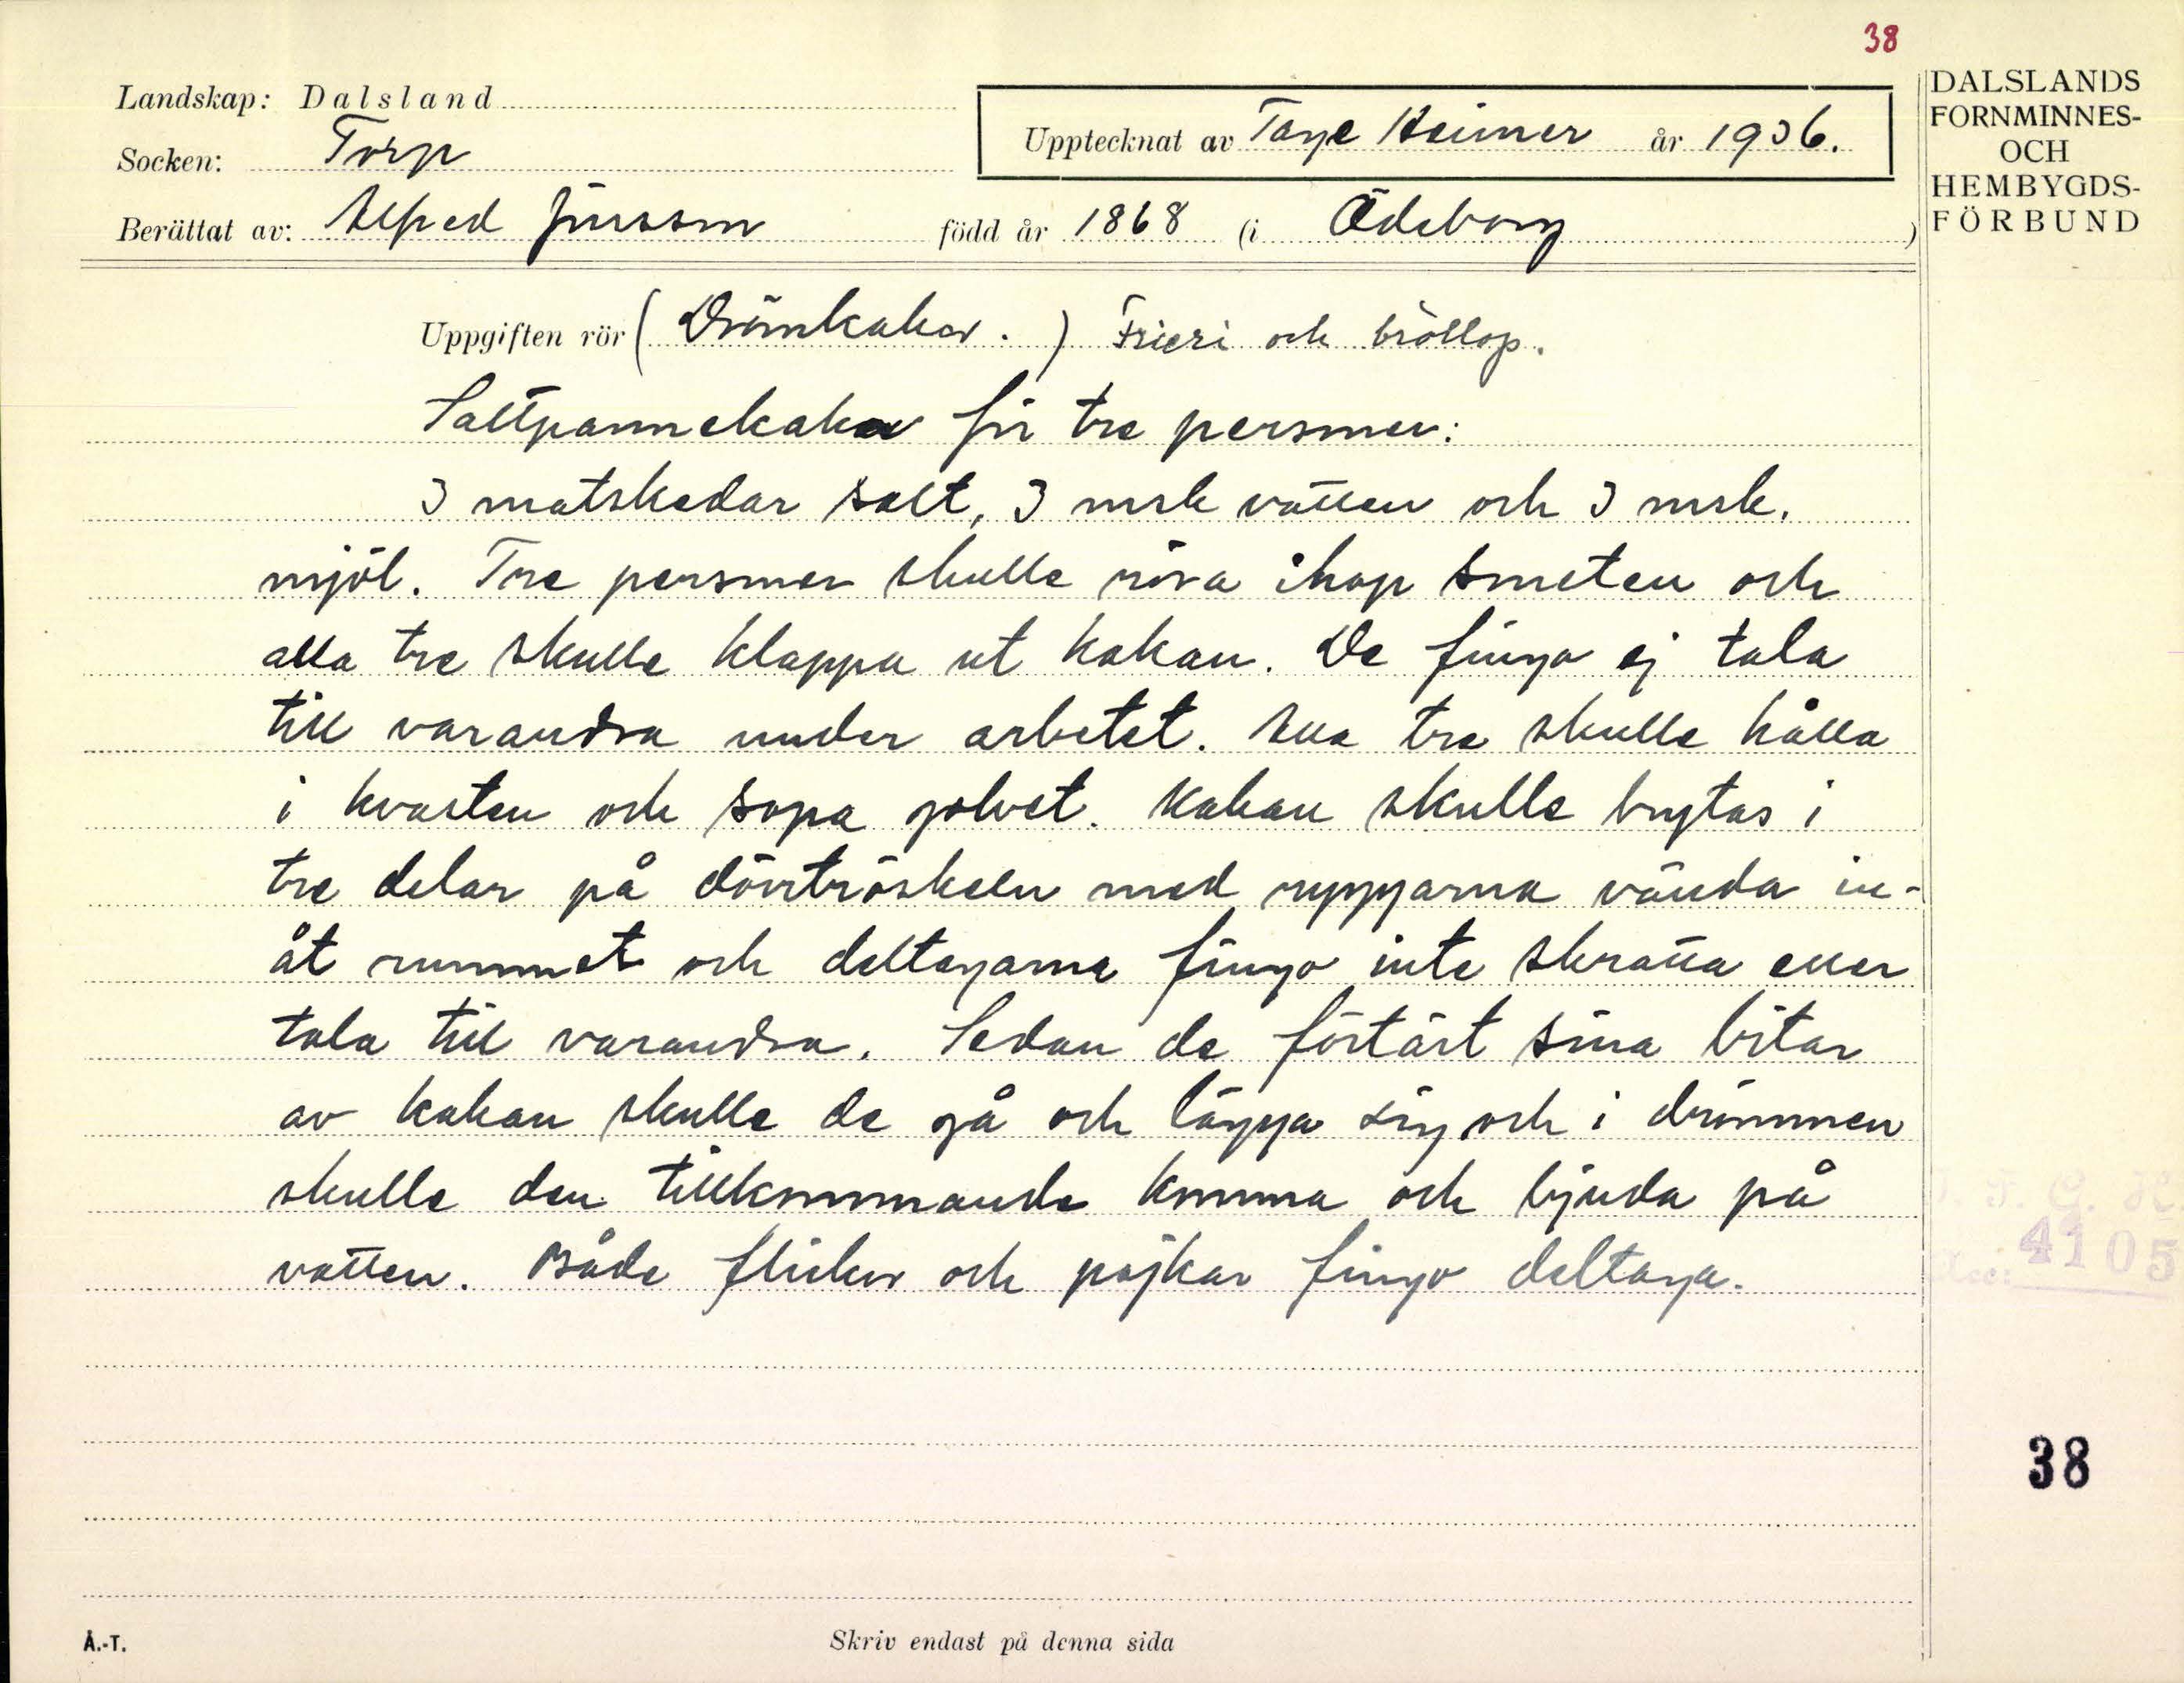 38
Landskap: Dalsland
Upptecknat av Tage Heimer år 1936.
Socken: Torp
Berättat av: Alfred Jönsson född år 1868 (i Ödeborg)
DALSLANDS
FORNMINNES-
OCH
HEMBYGDS-
FÖRBUND
Uppgiften rör (Drömkakor.) Frieri och bröllop.
Saltpannekakor för tre personer:
3 matskedar salt, 3 msk vatten och 3 msk.
mjöl. Tre personer skulle röra ihop smeten och
alla tre skulle klappa ut kakan. De fingo ej tala
till varandra under arbetet. Alla tre skulle hålla
i kvasten och sopa golvet. Kakan skulle brytas i
tre delar på dörrtröskeln med ryggarna vända in-
åt rummet och deltagarna fingo inte skratta eller
tala till varandra. Sedan de förtärt sina bitar
av kakan skulle de gå och lägga sig och i drömmen
skulle den tillkommande komma och bjuda på
vatten. Både flickor och pojkar fingo deltaga.
4105
38
Å.-T.
Skriv endast på denna sida